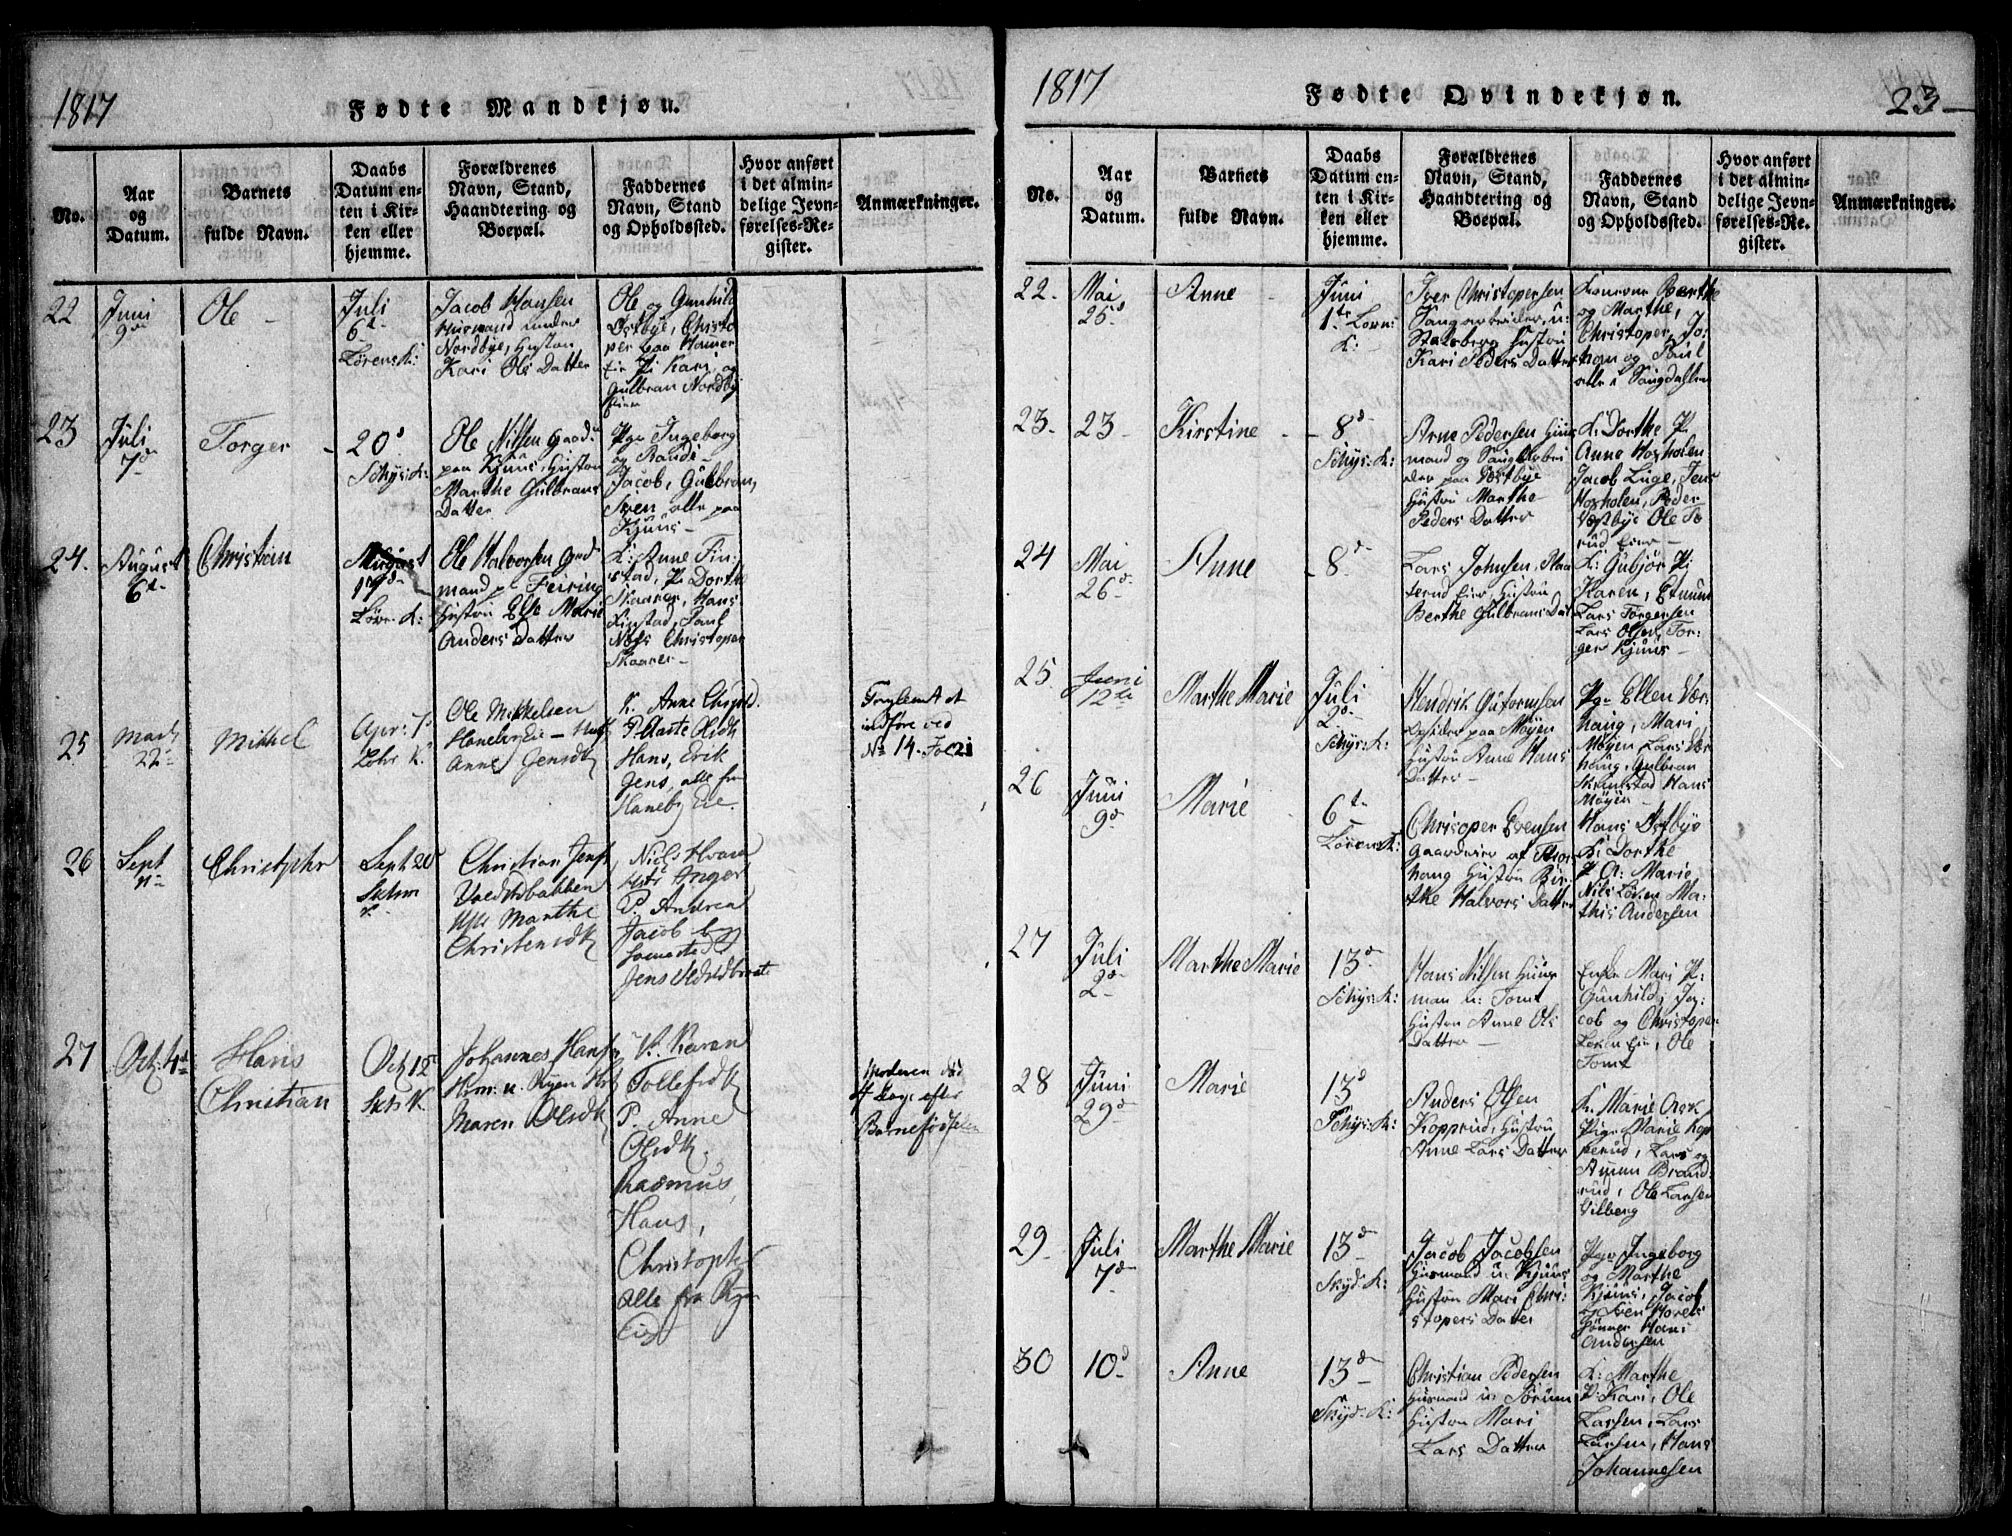 1817
Fødte Mandkjøn.
No.
Aar
og
Datum.
Barnets
fulde Navn.
Daabs
Datum en-
ten i Kir-
ken eller
hjemme.
Forældrenes
Navn, Stand,
Haandtering og
Boepæl.
Faddernes
Navn, Stand
og Opholdssted.
Hvor anført
i det almin-
delige Jevn-
førelses-Re-
gister.
Anmærkninger.
22
Juni
9de
Ole
Juli
6te
Lørensk:
Jacob Hansen
Huusmand under
Nordbye, Hustru
Kari Ols Datter
Ole og Gunhild
Østbye, Christo
per
Eie Pi Kari, og
Gulbran Nordby
eier
23
Juli
7de
Torger
20de
Schys: K:
Ole Nilsen Gaard
paa Kjuus, Hustru
Marthe Gulbrans
Datter
Pge Ingeborg
og Randi
Jacob, Gulbran,
Sven alle paa
Kjuus
24.
August
6te
Christian
August
17de
Løre. K:
Ole Halvorsen Gaard
mand p Feiring
Hustru Else Marie
Anders Datter
K: Anne Fin-
stad, P. Dorthe
Skaarer, Hans
Finstad, Poul
Christoper
Skaarer
25
Marts
22
Mikkel
Apr: 7
Lohr K.
Ole Mikkelsen
Haneby Eie
Anne Jensdtr
K. Anne
P. Olsdtr
Hans, Erik
Jens, alle fra
Haneby Eie.
indføre ved
No 14. Fol 21
26
Sept
11
Christopher
Sept 28
K
Christian Jens
Marthe
Christensdtr
Niels
Inger
P. Andrea
Jacob
Jens
27
Oct: 4de
Hans
Christian
Oct 12
K
Johannes Hans
Hsm. u. Ryen Hst
Maren Olsdtr
K. Karen
Tollefsdtr
P. Anne
Olsdtr.
Rasmus,
Hans,
Christopher
alle fra Ryen
Eie
Moderen død
4 Dage efter
Barnefødselen
1817
Fødte Qvindekjøn.
23
No.
Aar
og
Datum.
Barnets
fulde Navn.
Daabs
Datum en-
ten i Kir-
ken eller
hjemme.
Forældrenes
Navn, Stand,
Haandtering og
Boepæl.
Faddernes
Navn, Stand
og Opholdssted.
Hvor anført
i det almin-
delige Jevn-
førelses-Re-
gister.
Anmærkninger.
22.
Mai
25d
Anne
Juni
1te Lørn:
K:
Iver Christopersen
Saugarbeider, u:
Stalsberg Hustru
Kari Peders Datter
Konerne Berthe
og Marthe,
Christoper, Jo-
han og Paul
alle i Saugdalen
23.
23
Kirstine
8d
Schys: K:
Arne Pedersen Huus
mand og Saugarbei
der paa Vestbye
Hustru Marthe
Peders Datter
K: Dorthe P.
Anne Hoxholen
Jacob Lüge, Jens
Hoxholen, Peder
Vestbye Ole To
rud Eier
24
Mai
26d
Anne
8d
Lars Johnsen
Eier, Hustru
Berthe Gulbrans Dat
K: Gubjør P:
Karen, Etnum
Lars Torgersen
Lars Olsen, Tor-
ger Kjuus
25
Juni
12te
Marthe Marie
Juli
2de
Schys: K:
Hendrik Gutormsen
paa Møyen
Hustru Anne Hans
Datter
Pge Ellen Vær
haug, Mari
Møyen Lars Vær
haug, Gulbran
Hans
Møyen
26
Juni
9d
Marie
6te
Lørensk:
Chrisoper Evensen
Gaardeier af
haug Hustru Bir-
the Halvors Datter
Hans Østbye
K: Dorthe
P. A: Marie
Nils Løken Ma-
this Andersen
27
Juli
2de
Marthe Marie
13de
Schys: K:
Hans Nilsen Huus
man u: Tomt
Hustru Anne Ols
Datter
Enke Mari P:
Gunhild, Ja-
cob og Christoper
Løken Eie, Ole
Tomt
28
Juni
29de
Marie
13d
Schys: K:
Anders Olsen
Kopperud, Hustru
Anne Lars Datter
K: Marie Aask
Pige Marie Kop
perud, Lars og
Amun Brand-
rud, Ole Larsen
Vilberg
29
Juli
7de
Marthe Marie
13d
Skyd: K:
Jacob Jacobsen
Huusmand u: Kjuus
Hustru Mari Chri-
stopers Datter
Pge Ingeborg
og Marthe
Kjuus, Jacob
Sven
Hans
Andersen
30
10d
Anne
13de
Skyd: K:
Christian Pedersen
Huusmand u: Sørum
Hustru Mari
Lars Datter
K: Marthe
P: Kari, Ole
Larsen, Lars
Larsen, Hans
Johannesen